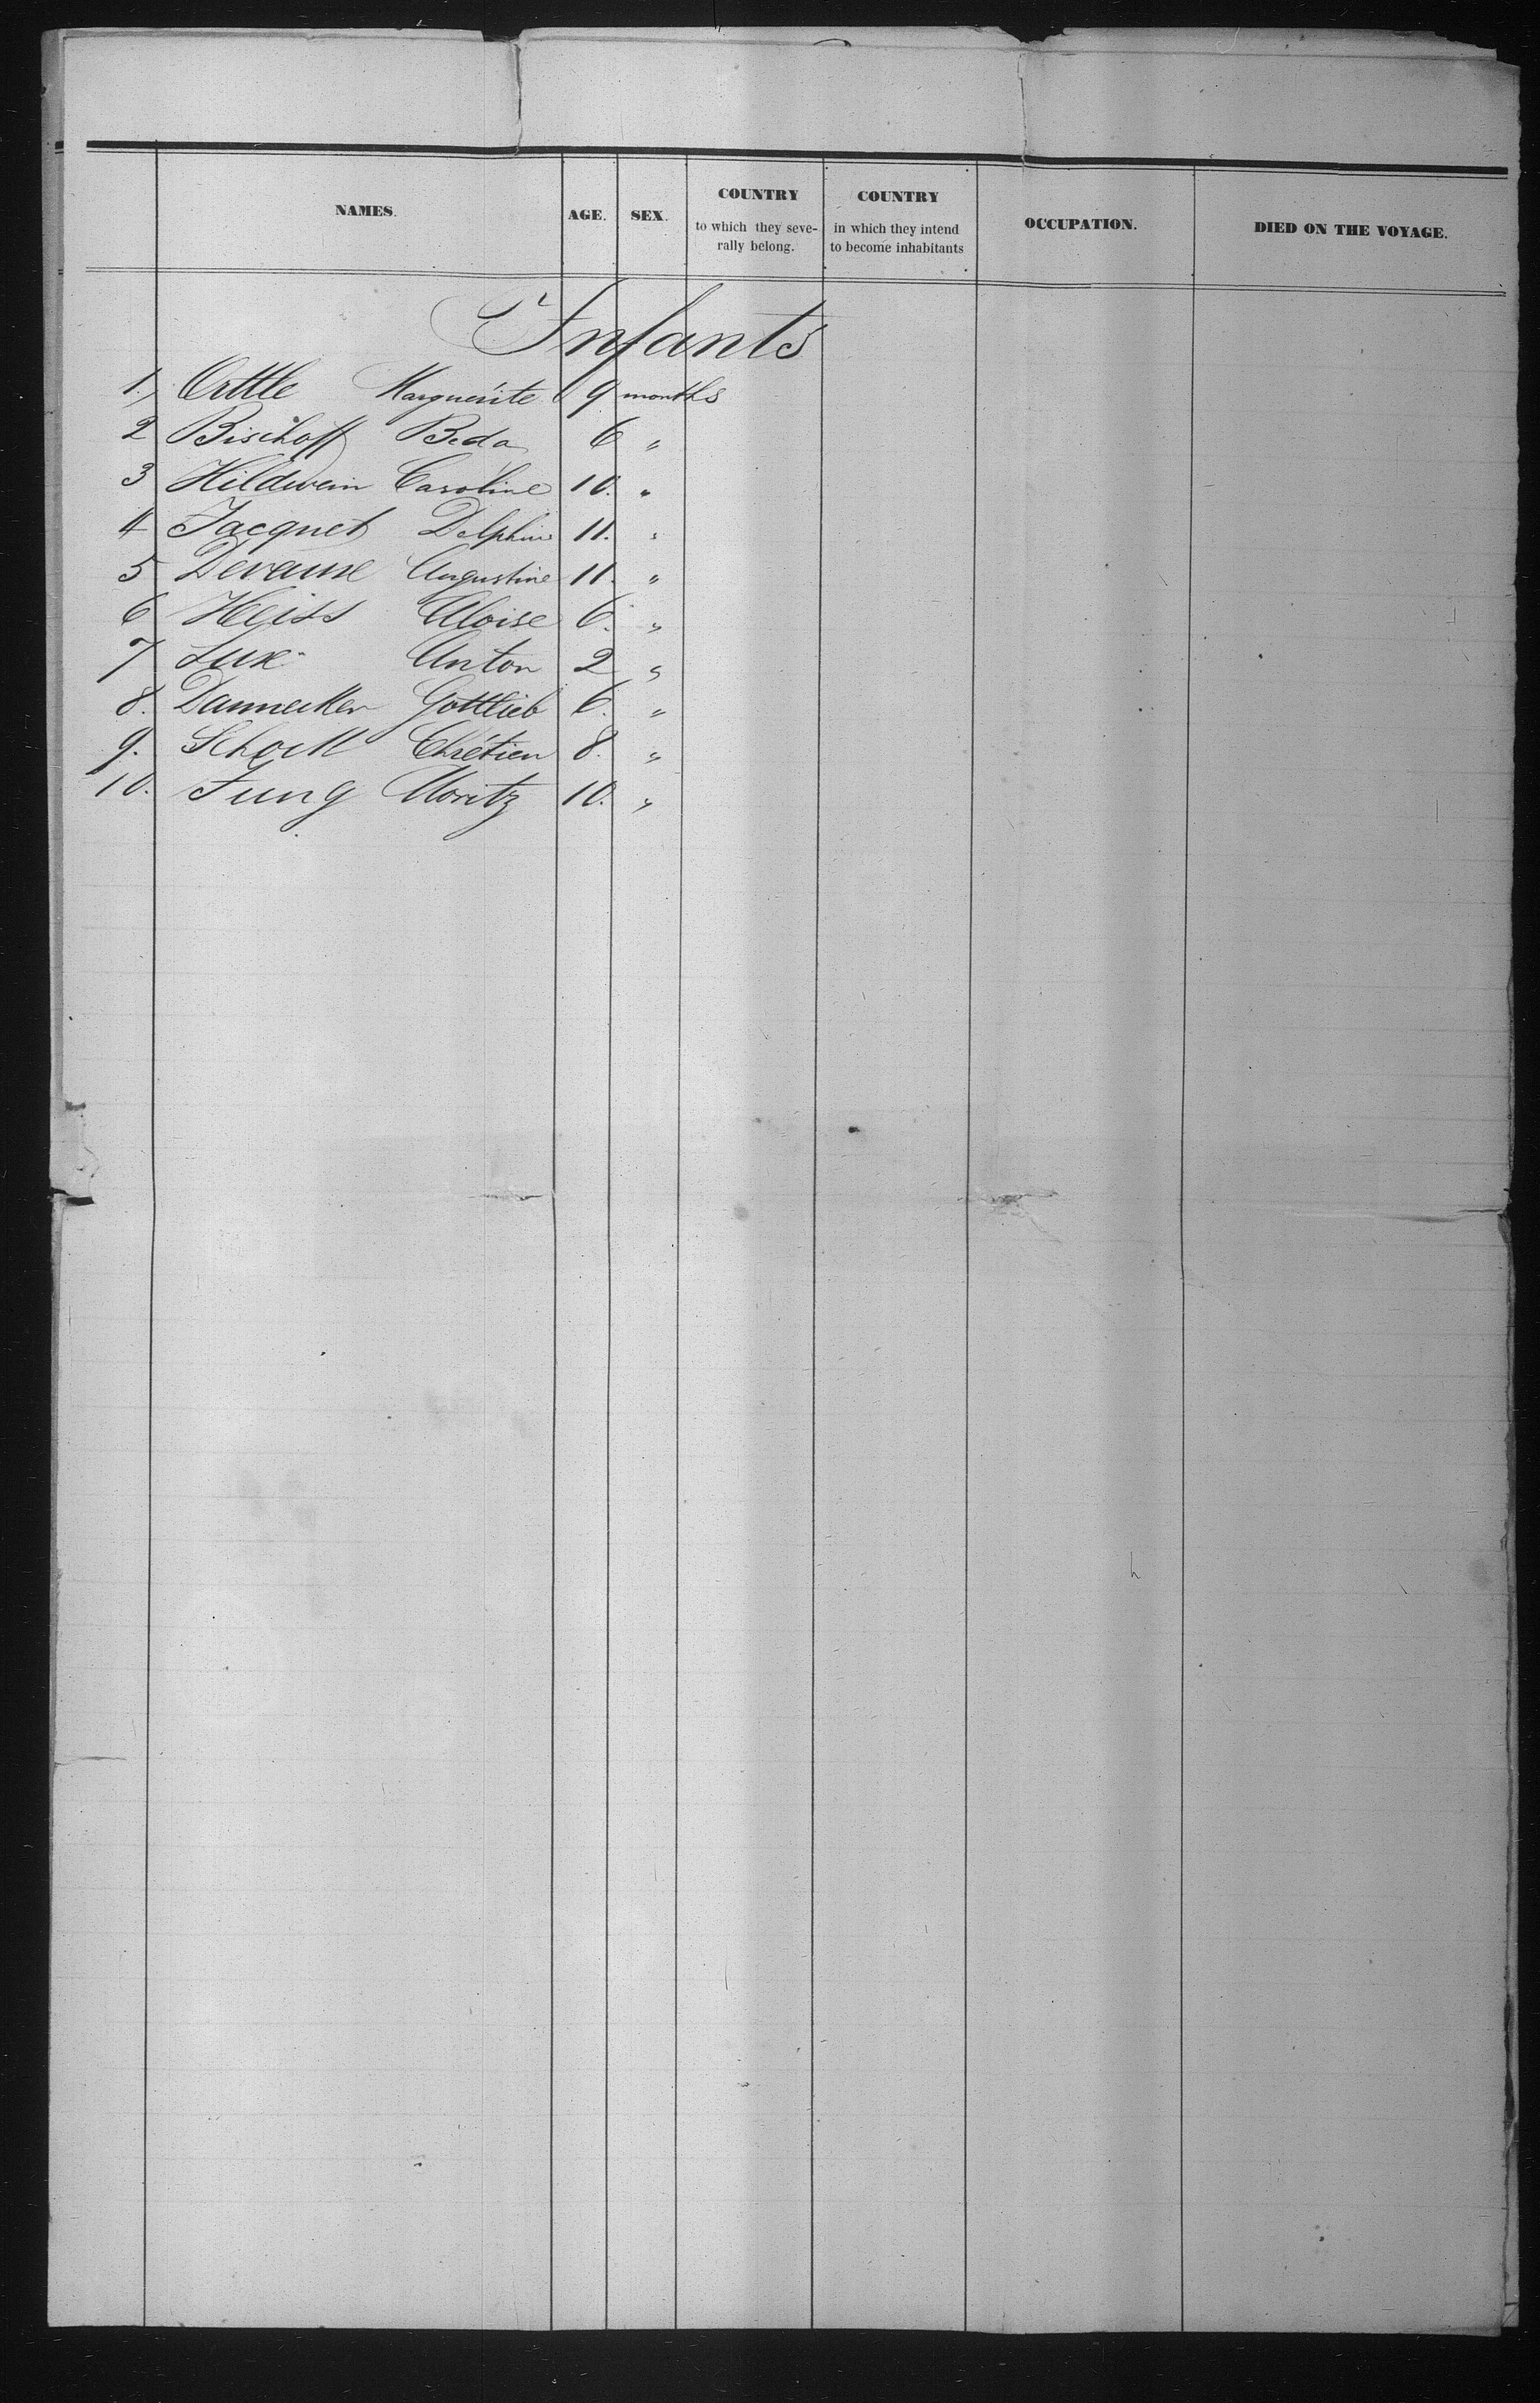 NAMES. AGE. SEX. COUNTRY to which they seve-rally belong. COUNTRY in which they intend to become inhabitants OCCUPATION. DIED ON THE VOYAGE.
Infants
1. Ortlle Marguerite 9 months
2 Bischoff Beda 6 "
3 Hildwein Caroline 10. "
4 Jacquet Delphine 11. "
5 Augustine 11. "
6 Heiss Aloise 6. "
7 Lux Anton 2 "
8. Dannecker Gottlieb 6. "
9. Schoell Chrétien 8. "
10. Jung Moritz 10. "